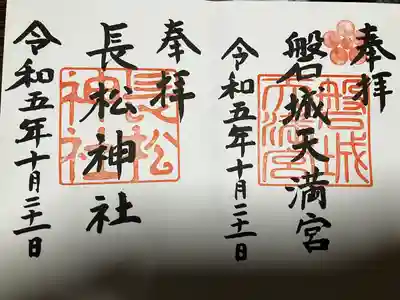 奉拝
磐城天満宮
令和五年十月二十一日
奉拝
長松神社
令和五年十月二十一日
長松神社